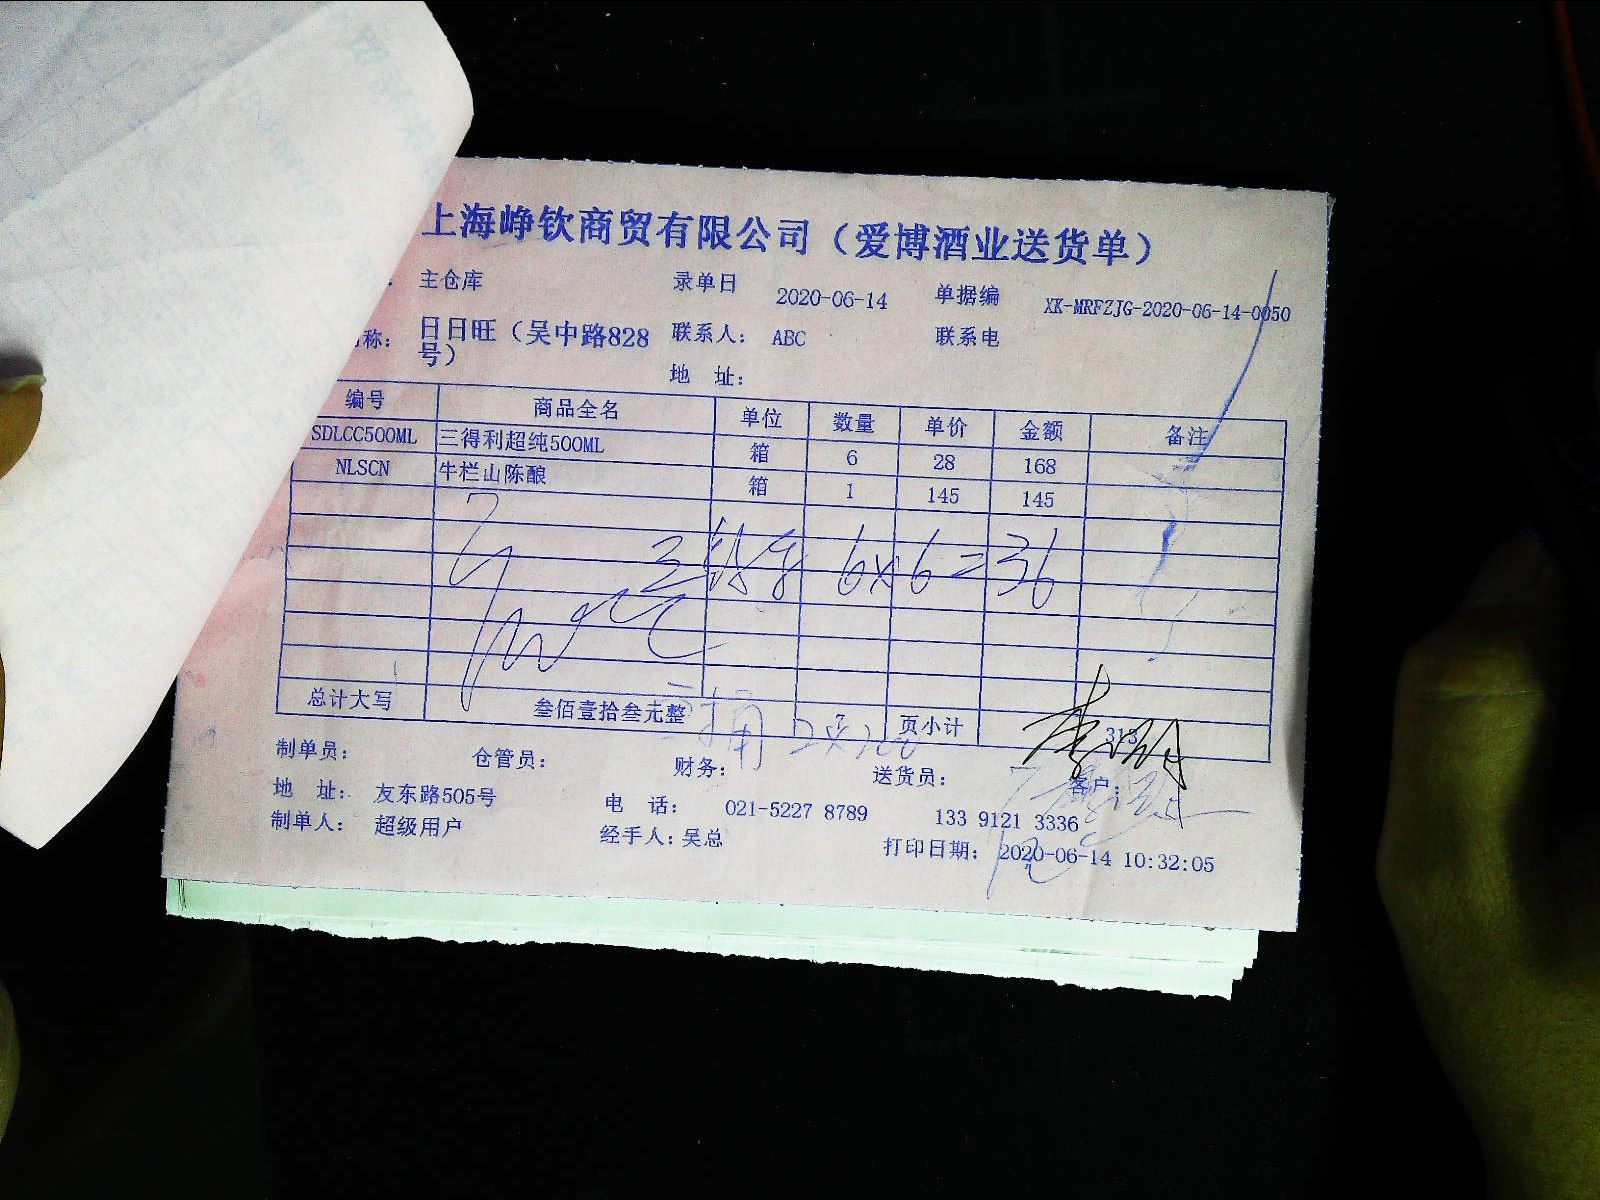 上海峥钦商贸有限公司（爱博酒业送货单）
主仓库 录单日 2020-06-14 单据编 XK-MRFZJG-2020-06-14-0050
称： 日日旺（吴中路828号） 联系人： ABC 联系电
地 址：
编号 商品全名 单位 数量 单价 金额 备注
SDLCC500ML 三得利超纯500ML 箱 6 28 168
NLSCN 牛栏山陈酿 箱 1 145 145
6×6=36
总计大写 叁佰壹拾叁元整 7 页小计 313
制单员： 仓管员： 财务： 送货员： 客户：
地 址： 友东路505号 电 话： 021-5227 8789 133 9121 3336
制单人： 超级用户 经手人：吴总 打印日期： 2020-06-14 10:32:05